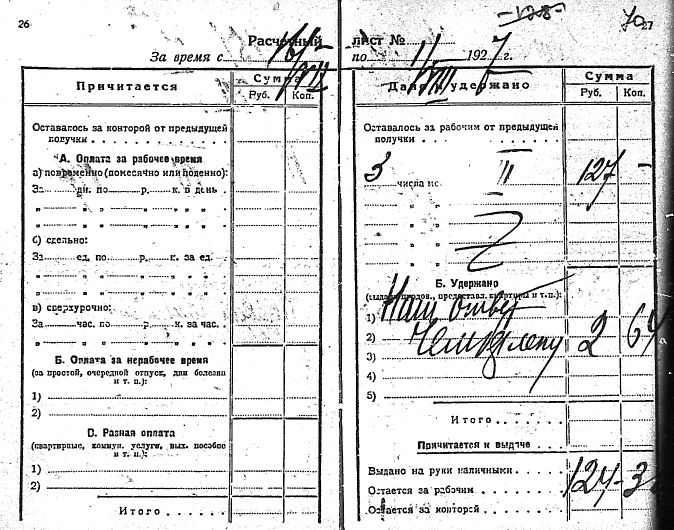 26
27
Расчетный лист №
За время с по 1927 г.
Причитается
Сумма
Руб. Коп.
Оставалось за конторой от предыдущей
получки
А. Оплата за рабочее время
а) повременно (помесячно или поденно):
За дн. по р. к. в день
„ „ „ „ „ „
„ „ „ „ „ „
с) сдельно:
За ед. по р. к. за ед.
„ „ „ „ „ „
„ „ „ „ „ „
в) сверхурочно:
За час. по р. к. за час.
„ „ „ „ „ „
Б. Оплата за нерабочее время
(за простой, очередной отпуск, дни болезни
и т. п.):
1)
2)
D. Разная оплата
(квартирные, коммун. услуги, вых. пособие
и т. п.):
1)
2)
Итого
Дано и удержано
Сумма
Руб. Коп.
Оставалось за рабочим от предыдущей
получки
3 числа 127 -
„ „
„ „
„ „
Б. Удержано
(выдача продов., предоставл. квартиры и т. п.):
1) Наш ответ
2) Чемберлену 2 64
3)
4)
5)
Итого
Причитается к выдаче
Выдано на руки наличными
Остается за рабочим 124-3
Остается за конторой